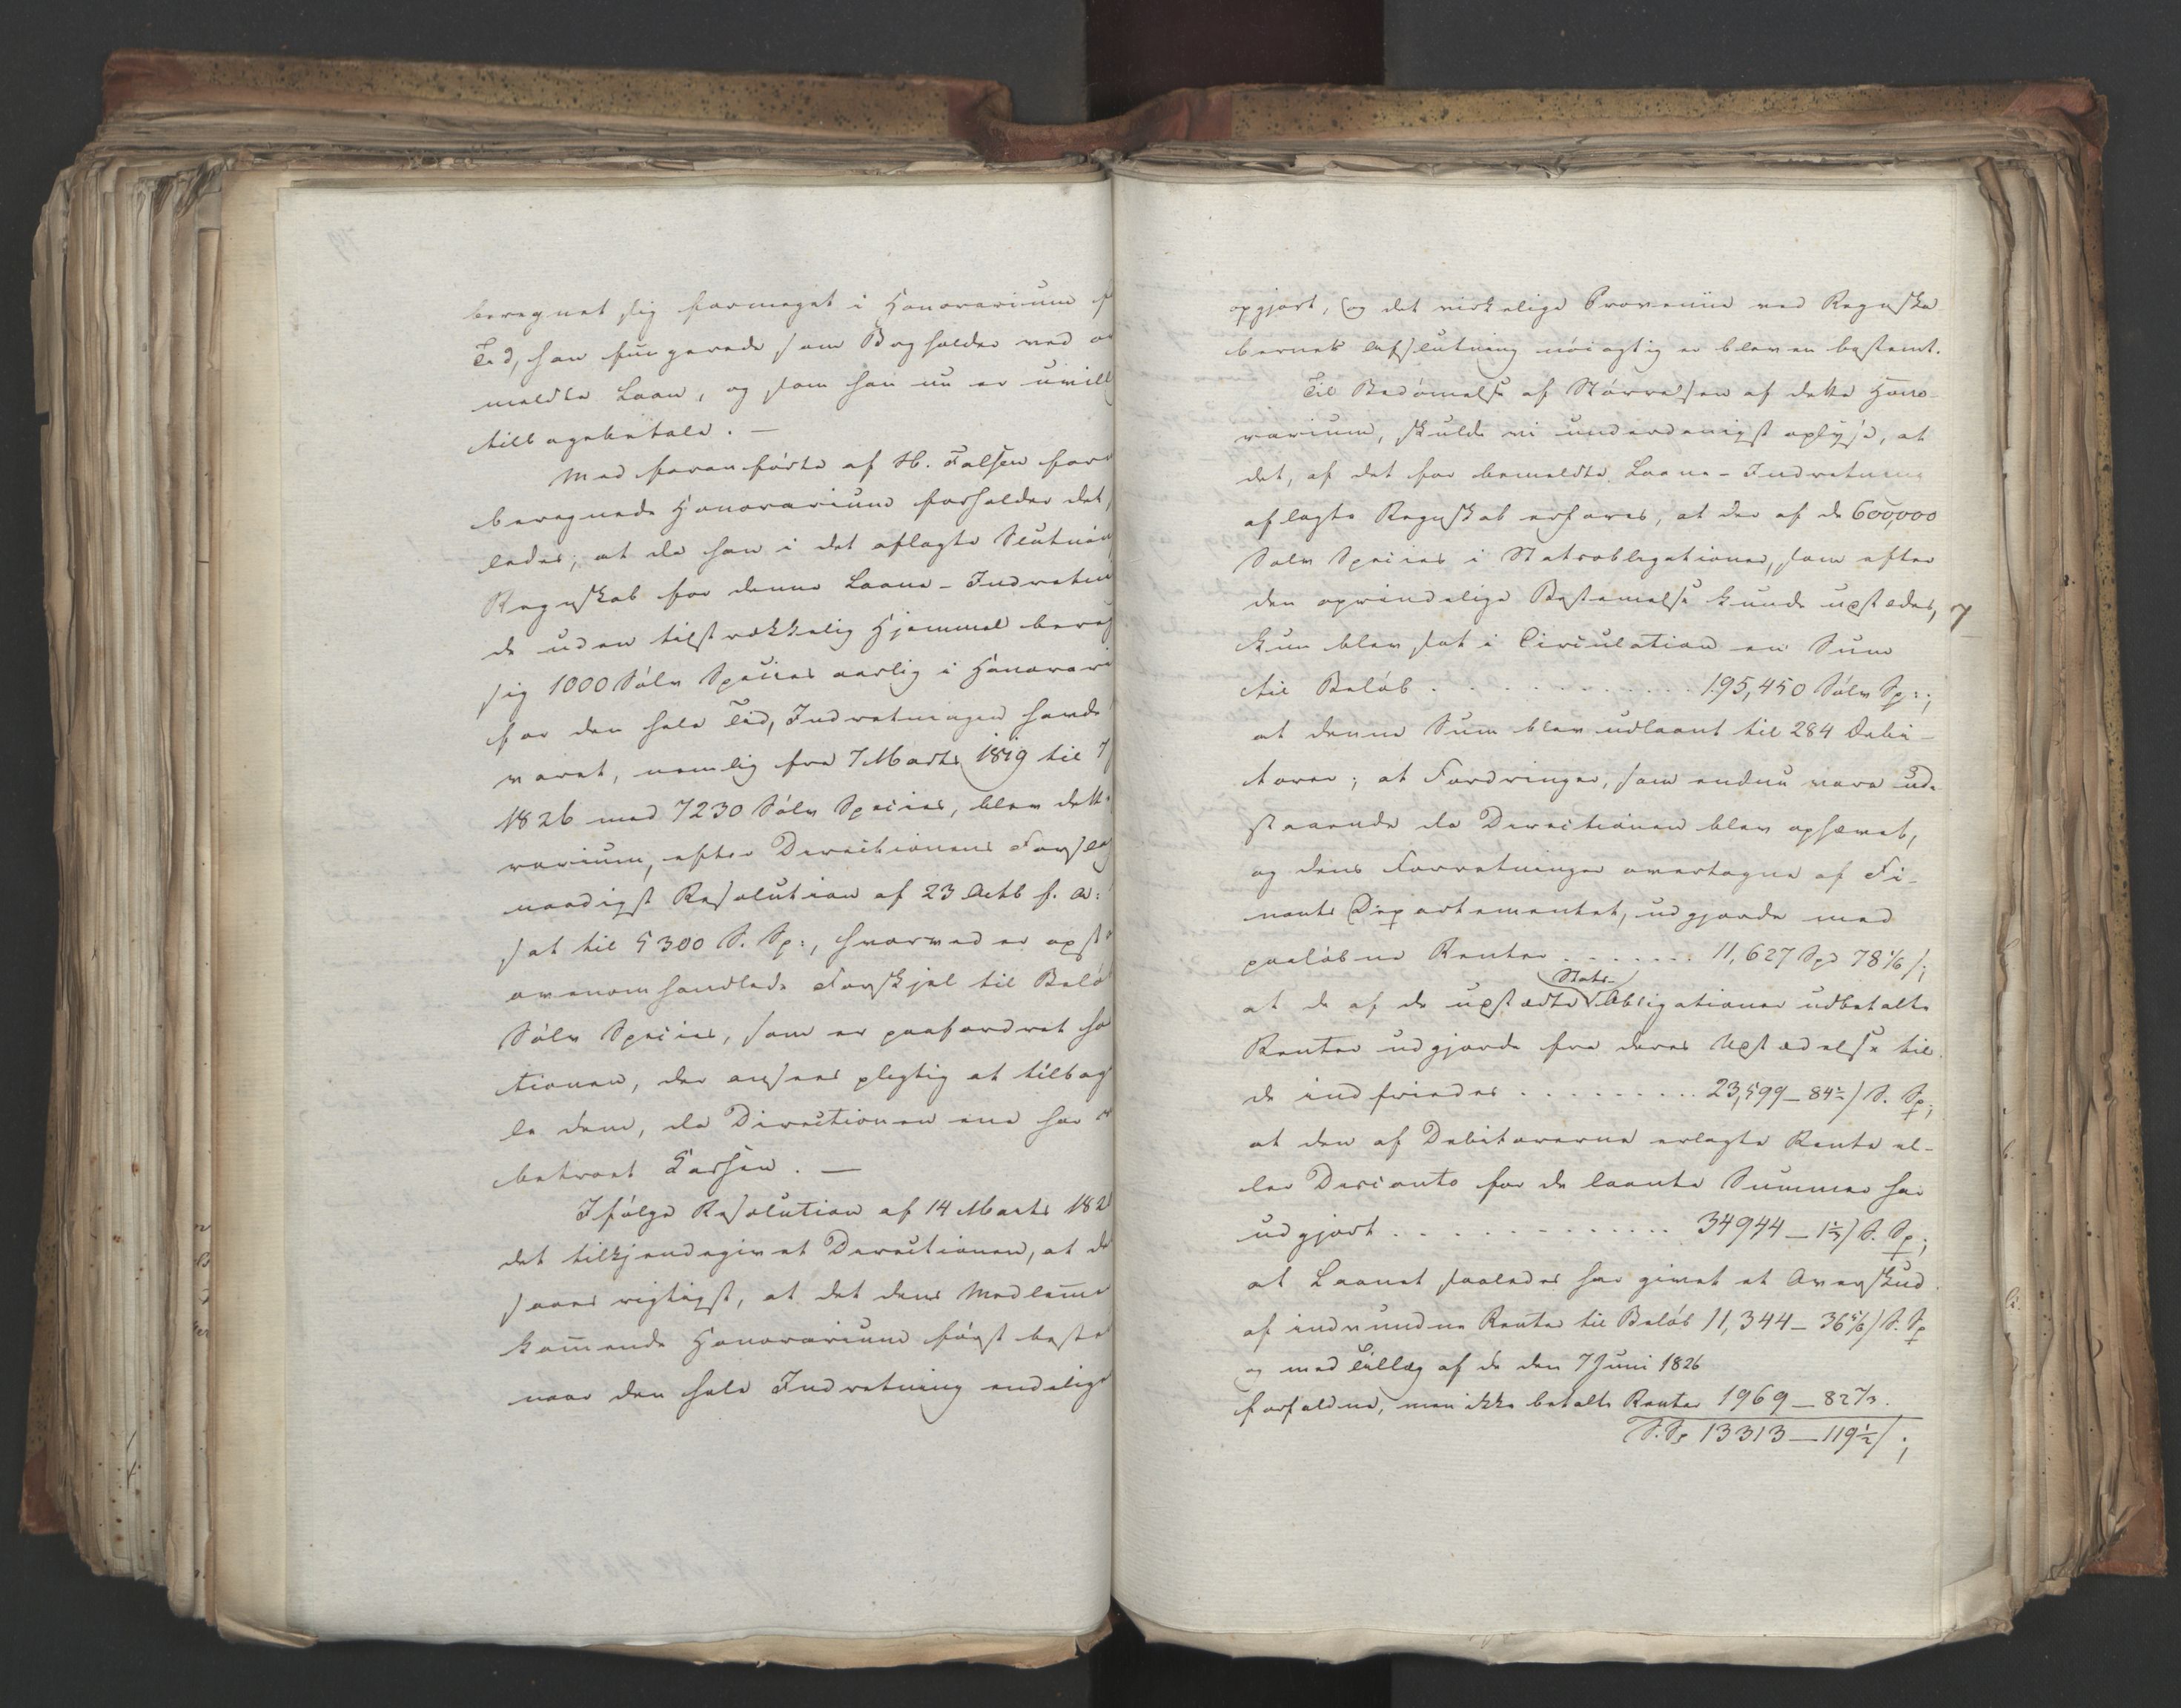 beregnet sig formeget i Honorarium f
Tid, han fungerede som Bogholder ved o
meldte Laan, og som han nu er uvill
tilbagebetale. —
Med foranførte af H. Falsen for
beregnede Honorarium forholder det
ledes; at da han i det aflagte Slutnin
Regnskab for denne Laane-Indretni
de uden tilstrækkelig Hjemmel bereg
sig 1000 Sølv Species aarlig i Honorari
for den hele Tid, Indretningen havde
varet, nemlig fra 7 Marts 1819 til 7
1826 med 7230 Sølv Species, blev dette
rarium, efter Directionens Forslag
naadigst Resolution af 23 Octb f. A:
sat til 5300 S. Sp:, hvorved er opst
ovenomhandlede Forskjel til Belø
Sølv Species, som er paafordret ho
tionen, der ansees pligtig at tilbag
le dem, da Directionen ene har
betroet Cassen. —
Ifølge Resolution af 14 Marts 182
det tilkjendegivet Directionen, at de
saaes rigtigst, at det dens Medlem̅e
kom̅ende Honorarium først beste
naar den hele Indretning endelige
opgjort, og det virkelige Provenue ved Regnska
bernes Afslutning nøiagtig er bleven bestemt.
Til Bedøm̅else af Størrelsen af dette Hono-
rarium, skulde vi underdanigst oplyse, at
det, af det for bemeldte Laane-Indretning
aflagte Regnskab erfares, at der af de 600,000
Sølv Species i Statsobligationer, som efter
den oprindelige Bestem̅else kunde udstædes,
kun blev sat i Circulation en Sum̅
til Beløb . . . . . . . . . . . 195,450 Sølv Sp:;
at denne Sum̅ blev udlaant til 284 Debi-
torer; at Fordringer, som endnu vare ude
staaende da Directionen blev ophævet,
og dens Forretninger overtagne af Fi-
nants Departementet, udgjorde med
paaløbne Renter . . . . . . . 11,627 Spd 78 1/6 s;
at de af de udstædte Stats- Obligationer udbetalte
Renter udgjorde fra deres Udstædelse til
de indfriedes . . . . . . . . . 23,599 — 84 ½ s S. Sp;
at den af Debitorerne erlagte Rente el-
ler Disconto for de laante Summer har
udgjort . . . . . . . . . . . . 34944 — 1 ⅓ s S. Sp;
at Laanet saaledes har givet et Overskud
af indvundne Renter til Beløb 11,344 — 36 5/6 s S. Sp
og med Tillæg af de den 7 Juni 1826
forfaldne, men ikke betalte Renter 1969 — 82 ⅔.
S. Sp 13313 — 119 ½ s;